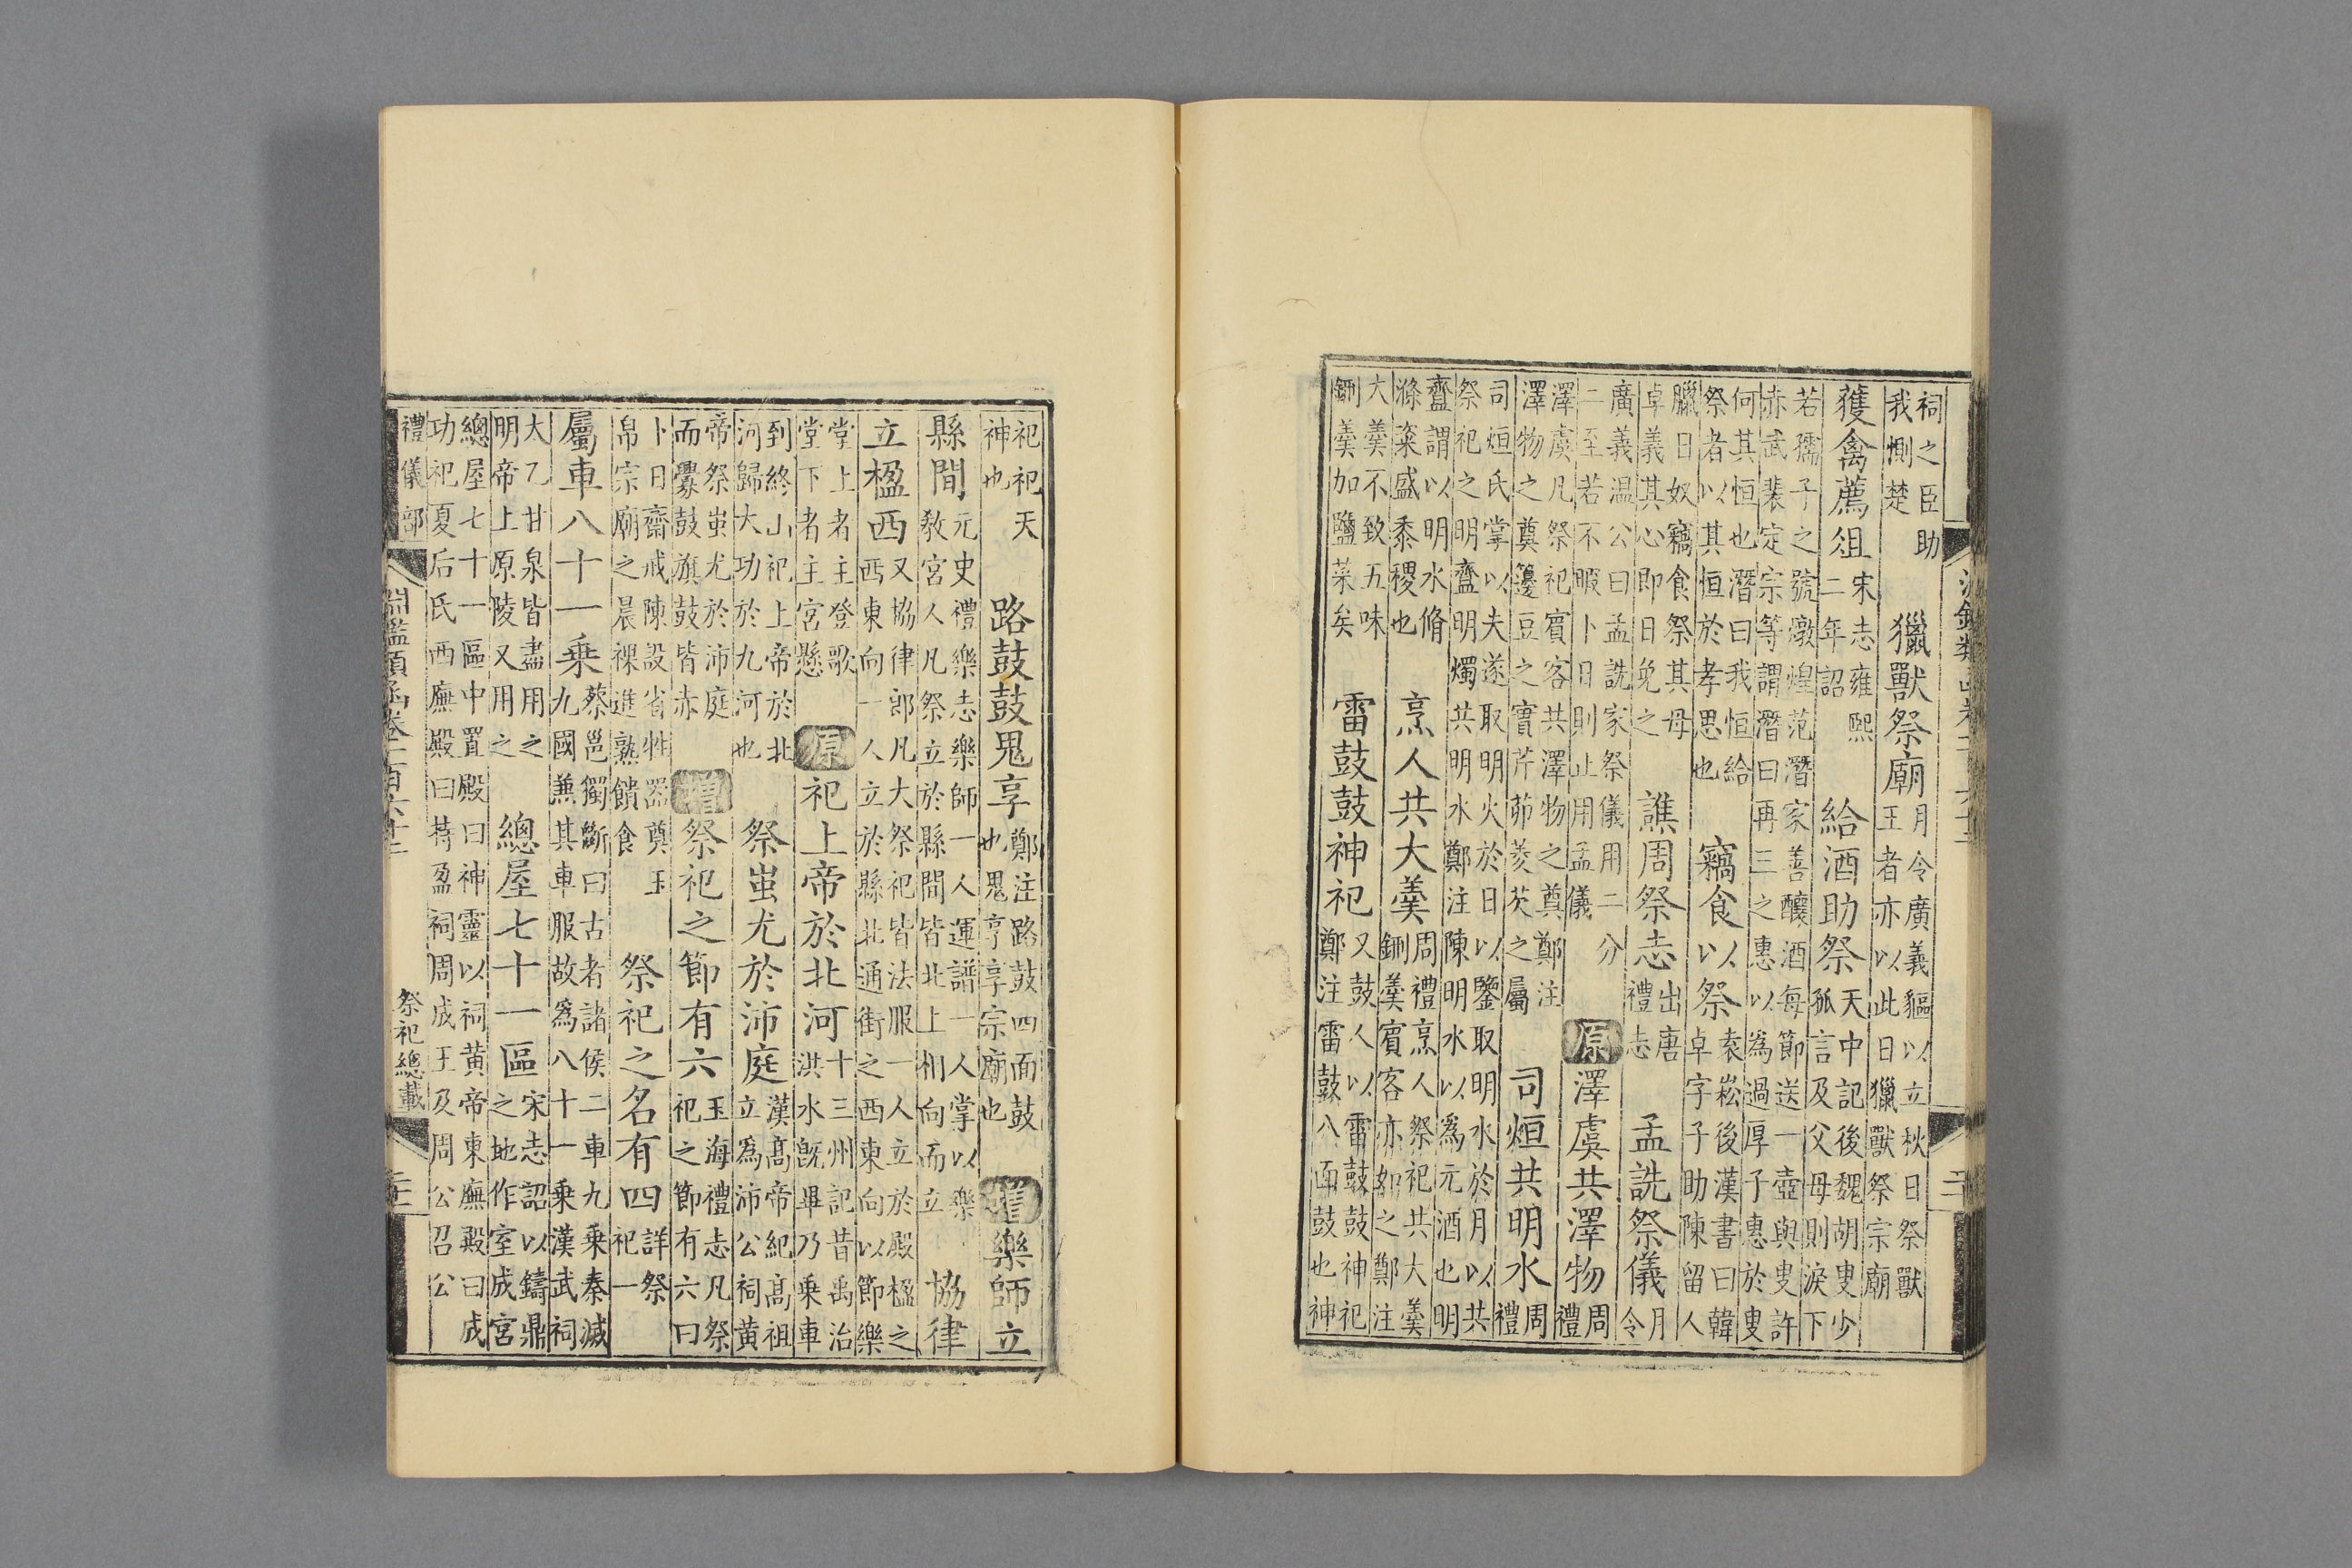 祠之臣助
我惻楚
獵獸祭廟
月令廣義貙以立秋日祭獸
王者亦以此日獵獸祭宗廟
獲禽薦俎
宋志雍熙
二年詔
給酒助祭
天中記後魏胡叟少
孤言及父母則淚下
若孺子之號燉煌范潛家善釀酒每節送一壺與叟許
赤武裴定宗等謂潛曰再三之惠以爲過厚子惠於叟
何其恒也潛曰我恒給
祭者以其恒於孝思也
竊食以祭
袁崧後漢書曰韓
卓字子助陳留人
臘日奴竊食祭其母
卓義其心即日免之
譙周祭志
出唐
禮志
孟詵祭儀
月
令
廣義温公曰孟詵家祭儀用二分
二至若不暇卜日則止用孟儀
原
澤虞共澤物
周
禮
澤虞凡祭祀賓客共澤物之奠鄭注
澤物之奠籩豆之實芹茆菱芡之屬
司烜共明水
周
禮
司烜氏掌以夫遂取明火於日以鑒取明水於月以共
祭祀之明齍明燭共明水鄭注陳明水以爲元酒也明
齍謂以明水脩
滌粢盛黍稷也
烹人共大羹
周禮烹人祭祀共大羹
鉶羹賓客亦如之鄭注
大羹不致五味
鉶羹加鹽菜矣
雷鼓鼓神祀
又鼓人以雷鼓鼓神祀
鄭注雷鼓八面鼓也神
祀祀天
神也
路鼓鼓鬼享
鄭注路鼓四面鼓
也鬼享享宗廟也
增
樂師立
縣間
元史禮樂志樂師一人運譜一人掌以樂
教宮人凡祭立於縣間皆北上相向而立
協律
立楹西
又協律郎凡大祭祀皆法服一人立於殿楹之
西東向一人立於縣北通街之西東向以節樂
堂上者主登歌
堂下者主宮懸
原
祀上帝於北河
十三州記昔禹治
洪水旣畢乃乗車
到終山祀上帝於北
河歸大功於九河也
祭蚩尤於沛庭
漢髙帝紀髙祖
立爲沛公祠黄
帝祭蚩尤於沛庭
而釁鼓旗鼓皆赤
增
祭祀之節有六
玉海禮志凡祭
祀之節有六曰
卜日齋戒陳設省牲器奠玉
帛宗廟之晨祼進熟饋食
祭祀之名有四
詳祭
祀一
屬車八十一乗
蔡邕獨斷曰古者諸侯二車九乗秦滅
九國兼其車服故爲八十一乗漢武祠
大乙甘泉皆盡用之
明帝上原陵又用之
總屋七十一區
宋志詔以鑄鼎
之地作室成宮
總屋七十一區中置殿曰神靈以祠黄帝東廡殿曰成
功祀夏后氏西廡殿曰持盈祠周成王及周公召公
禮儀部
淵鑑類函卷一百六十二
祭祀總載